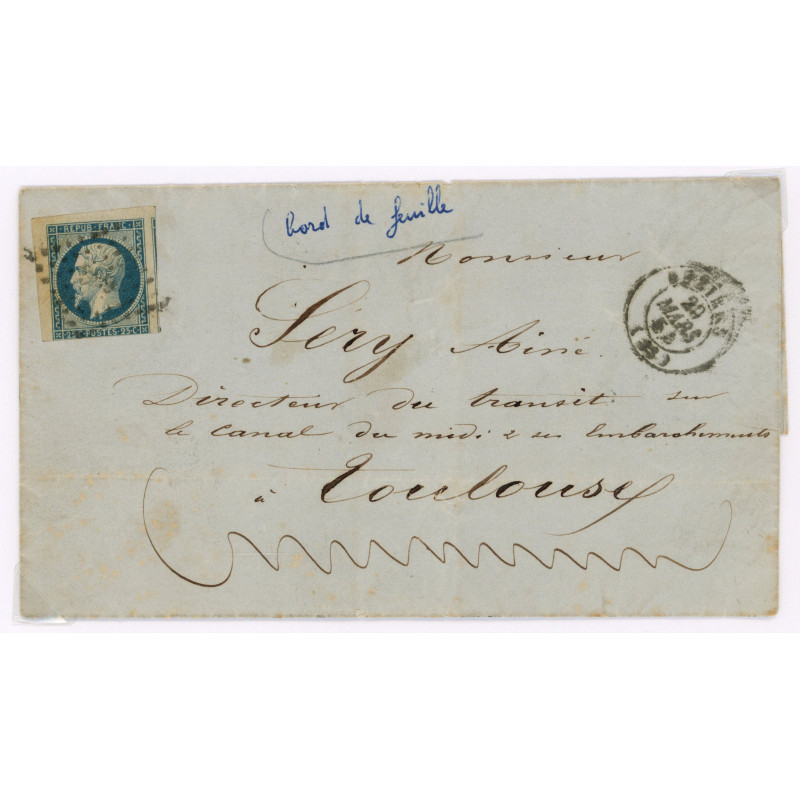 bord de feuille
REPUB. FRANC.
25 C POSTES 25 C
Monsieur
Séry Ainé
BEZIERS
29
MARS
(33)
Directeur du transit sur
le Canal du midi & ses Embarchements
à Toulouse